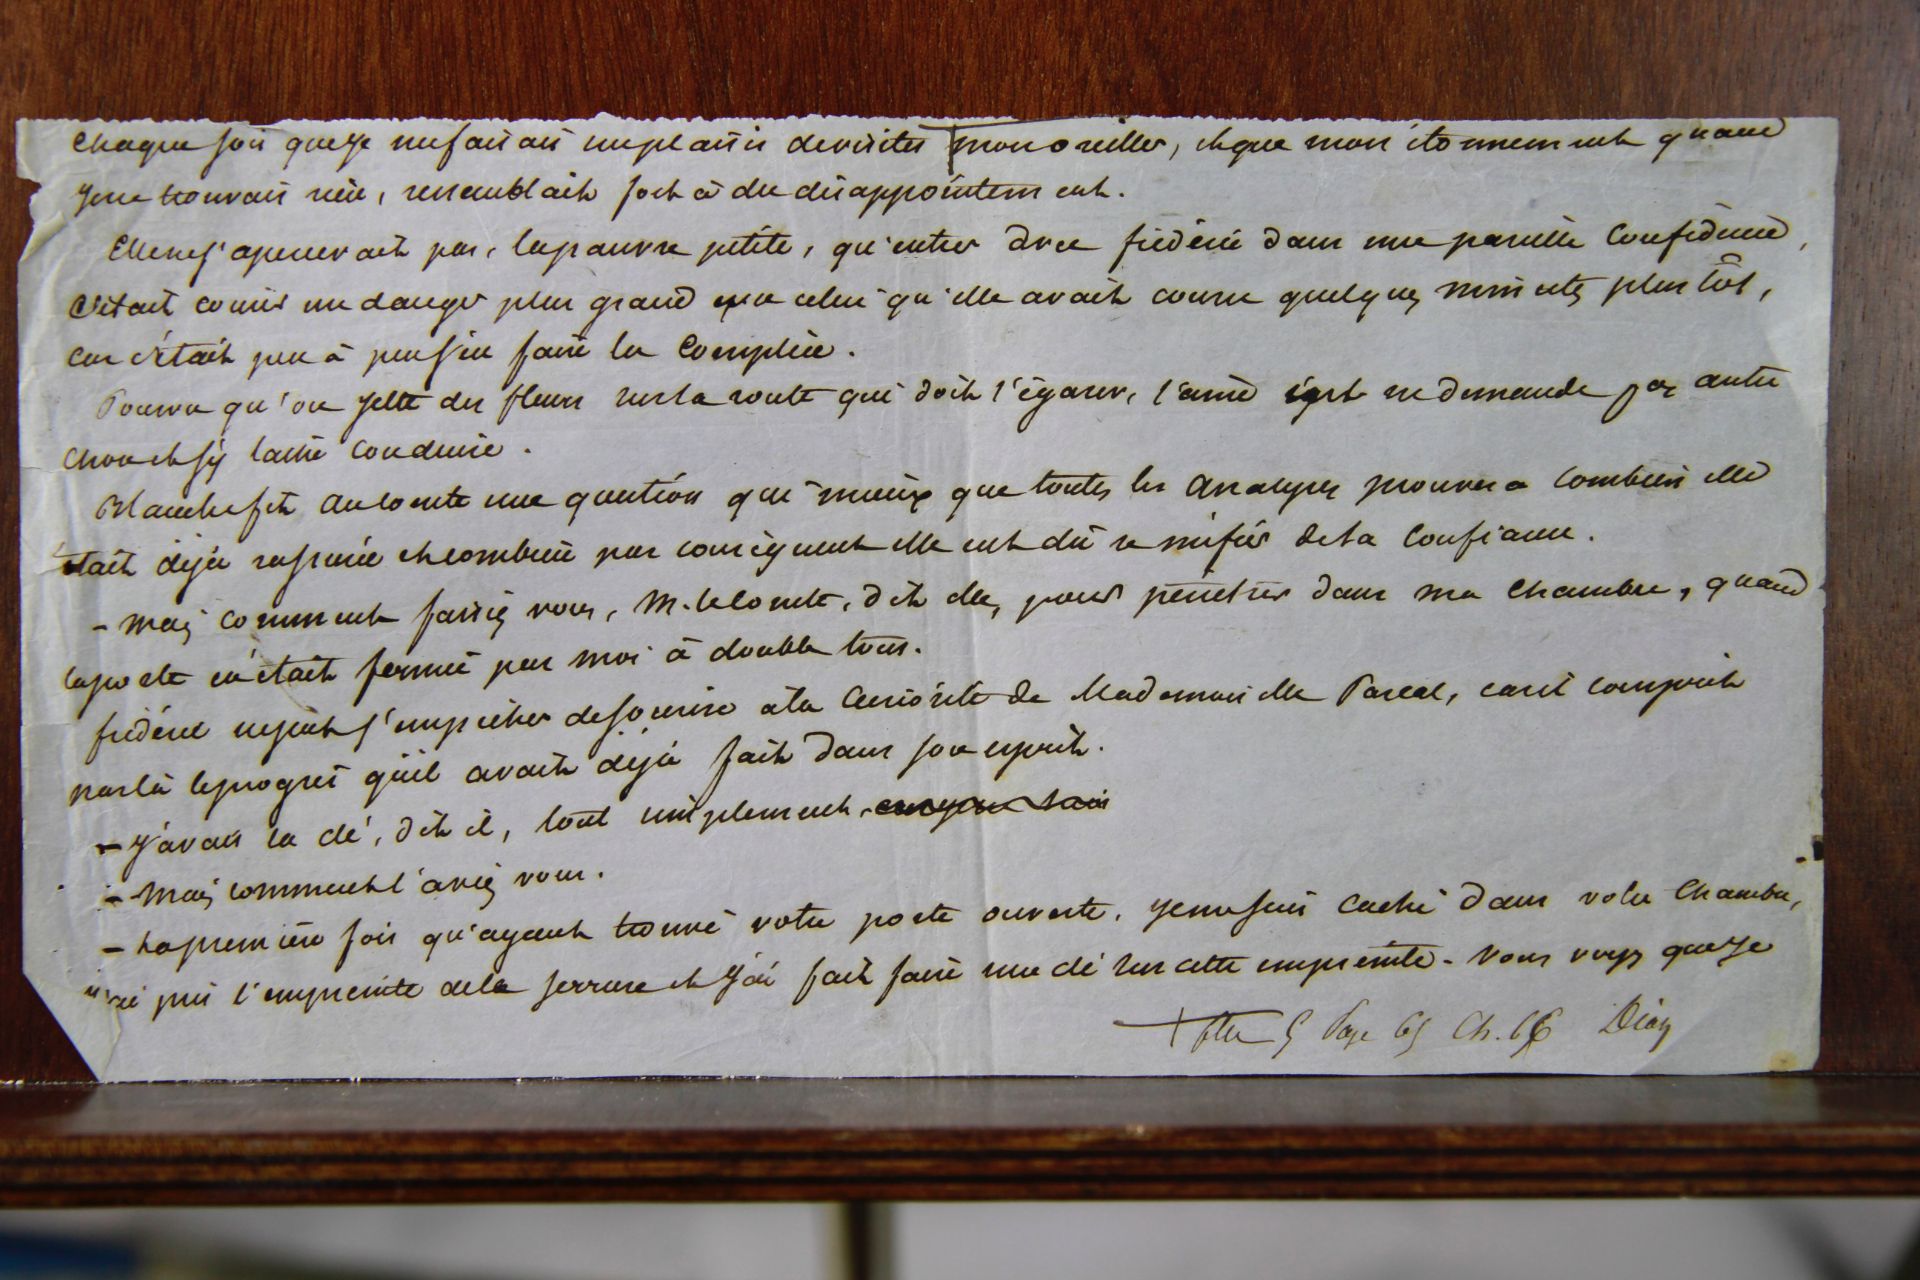 chaque fois que je me faisais un plaisir de visiter mon oreiller, et que mon étonnement quand
je ne trouvais rien, ressemblait fort à du désappointement.
Elle ne s'apercevait pas, la pauvre petite, qu'entrer avec frédéric dans une pareille confidence,
c'était courir un danger plus grand que celui qu'elle avait couru quelques minutes plus tôt,
car c'était peu à peu s'en faire la complice.
Pourvu qu'on jette des fleurs sur la route qui doit l'égarer, l'âme ne demande pas autre
chose et s'y laisse conduire.
Blanche fit au comte une question qui mieux que toutes les analyses prouvera combien elle
était déjà rassurée et combien par conséquent elle eut dû se méfier de sa confiance.
- Mais comment fassiez vous, M. le comte, dit elle, pour pénétrer dans ma chambre, quand
la porte en était fermée par moi à double tour.
frédéric ne put s'empêcher de sourire à la curiosité de Mademoiselle Pascal, car il comprit
par là le progrès qu'il avait déjà fait dans son esprit.
- J'avais la clé, dit il, tout simplement.
- Mais comment l'aviez vous.
- La première fois qu'ayant trouvé votre porte ouverte, je me suis caché dans votre chambre,
j'ai pris l'empreinte de la serrure et j'ai fait faire une clé sur cette empreinte - Vous voyez que je
Page 65 Ch.